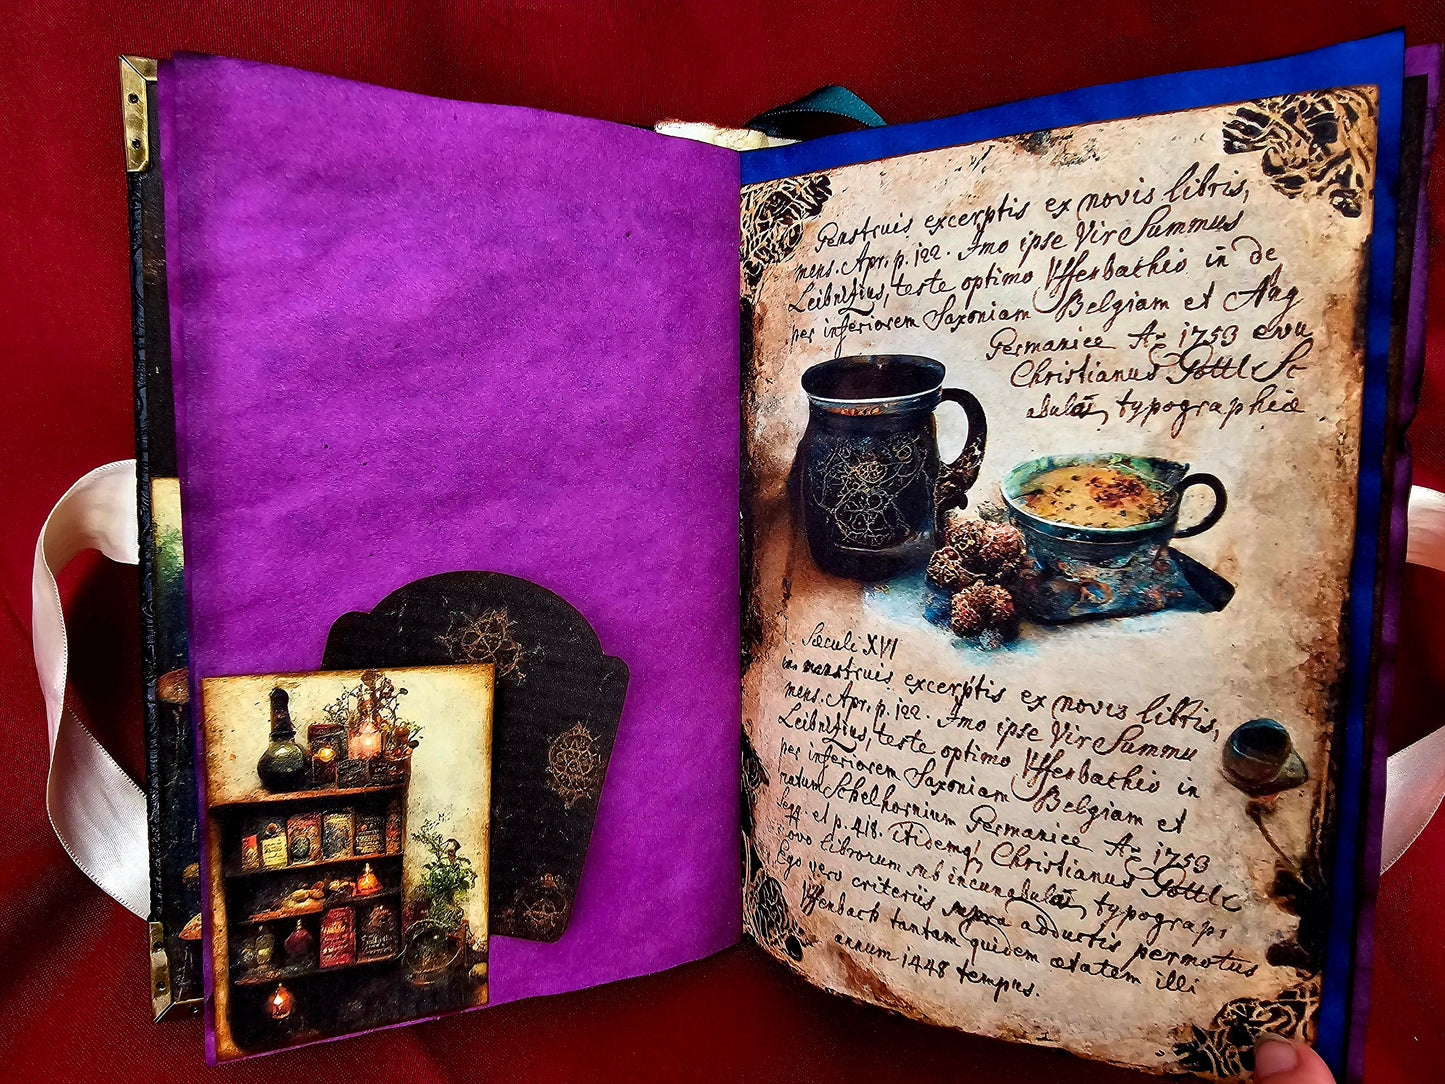 excerptis ex novis libris,
mens. Apr. p. 122. Imo ipse Vir Summus
Leibnitius, teste optimo Uffenbachio in de
per inferiorem Saxoniam Belgiam et Ang
Germaniæ Ao 1753 evu
Christianus Gottl Sc
abulai, typographiæ
Sæculi XVI
in menstruis excerptis ex novis libris,
mens. Apr. p. 122. Imo ipse Vir Summu
Leibnitius, teste optimo Uffenbachio in
per inferiorem Saxoniam Belgiam et
natum Schelhornium Germaniæ Ao 1753
seqq. et p. 418. Itidemq; Christianus Gottl
Novo librorum sub incunabulai, typograpi
Ego vero criteriis supra adductis permotus
Uffenbach tantam quidem ætatem illi
annum 1448 tempus.